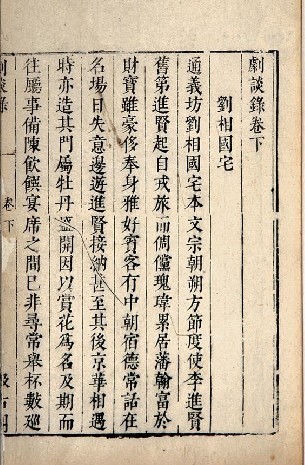 劇談錄卷下
劉相國宅
通義坊劉相國宅本文宗朝朔方節度使李進賢
舊第進賢起自戎旅而倜儻瑰瑋累居藩翰富於
財寶雖豪侈奉身雅好賓客有中朝宿德常話在
名場日失意邊遊進賢接納甚至其後京華相遇
時亦造其門屬牡丹盛開因以賞花爲名及期而
往廳事備陳飲饌宴席之間已非尋常舉杯數巡
卷下